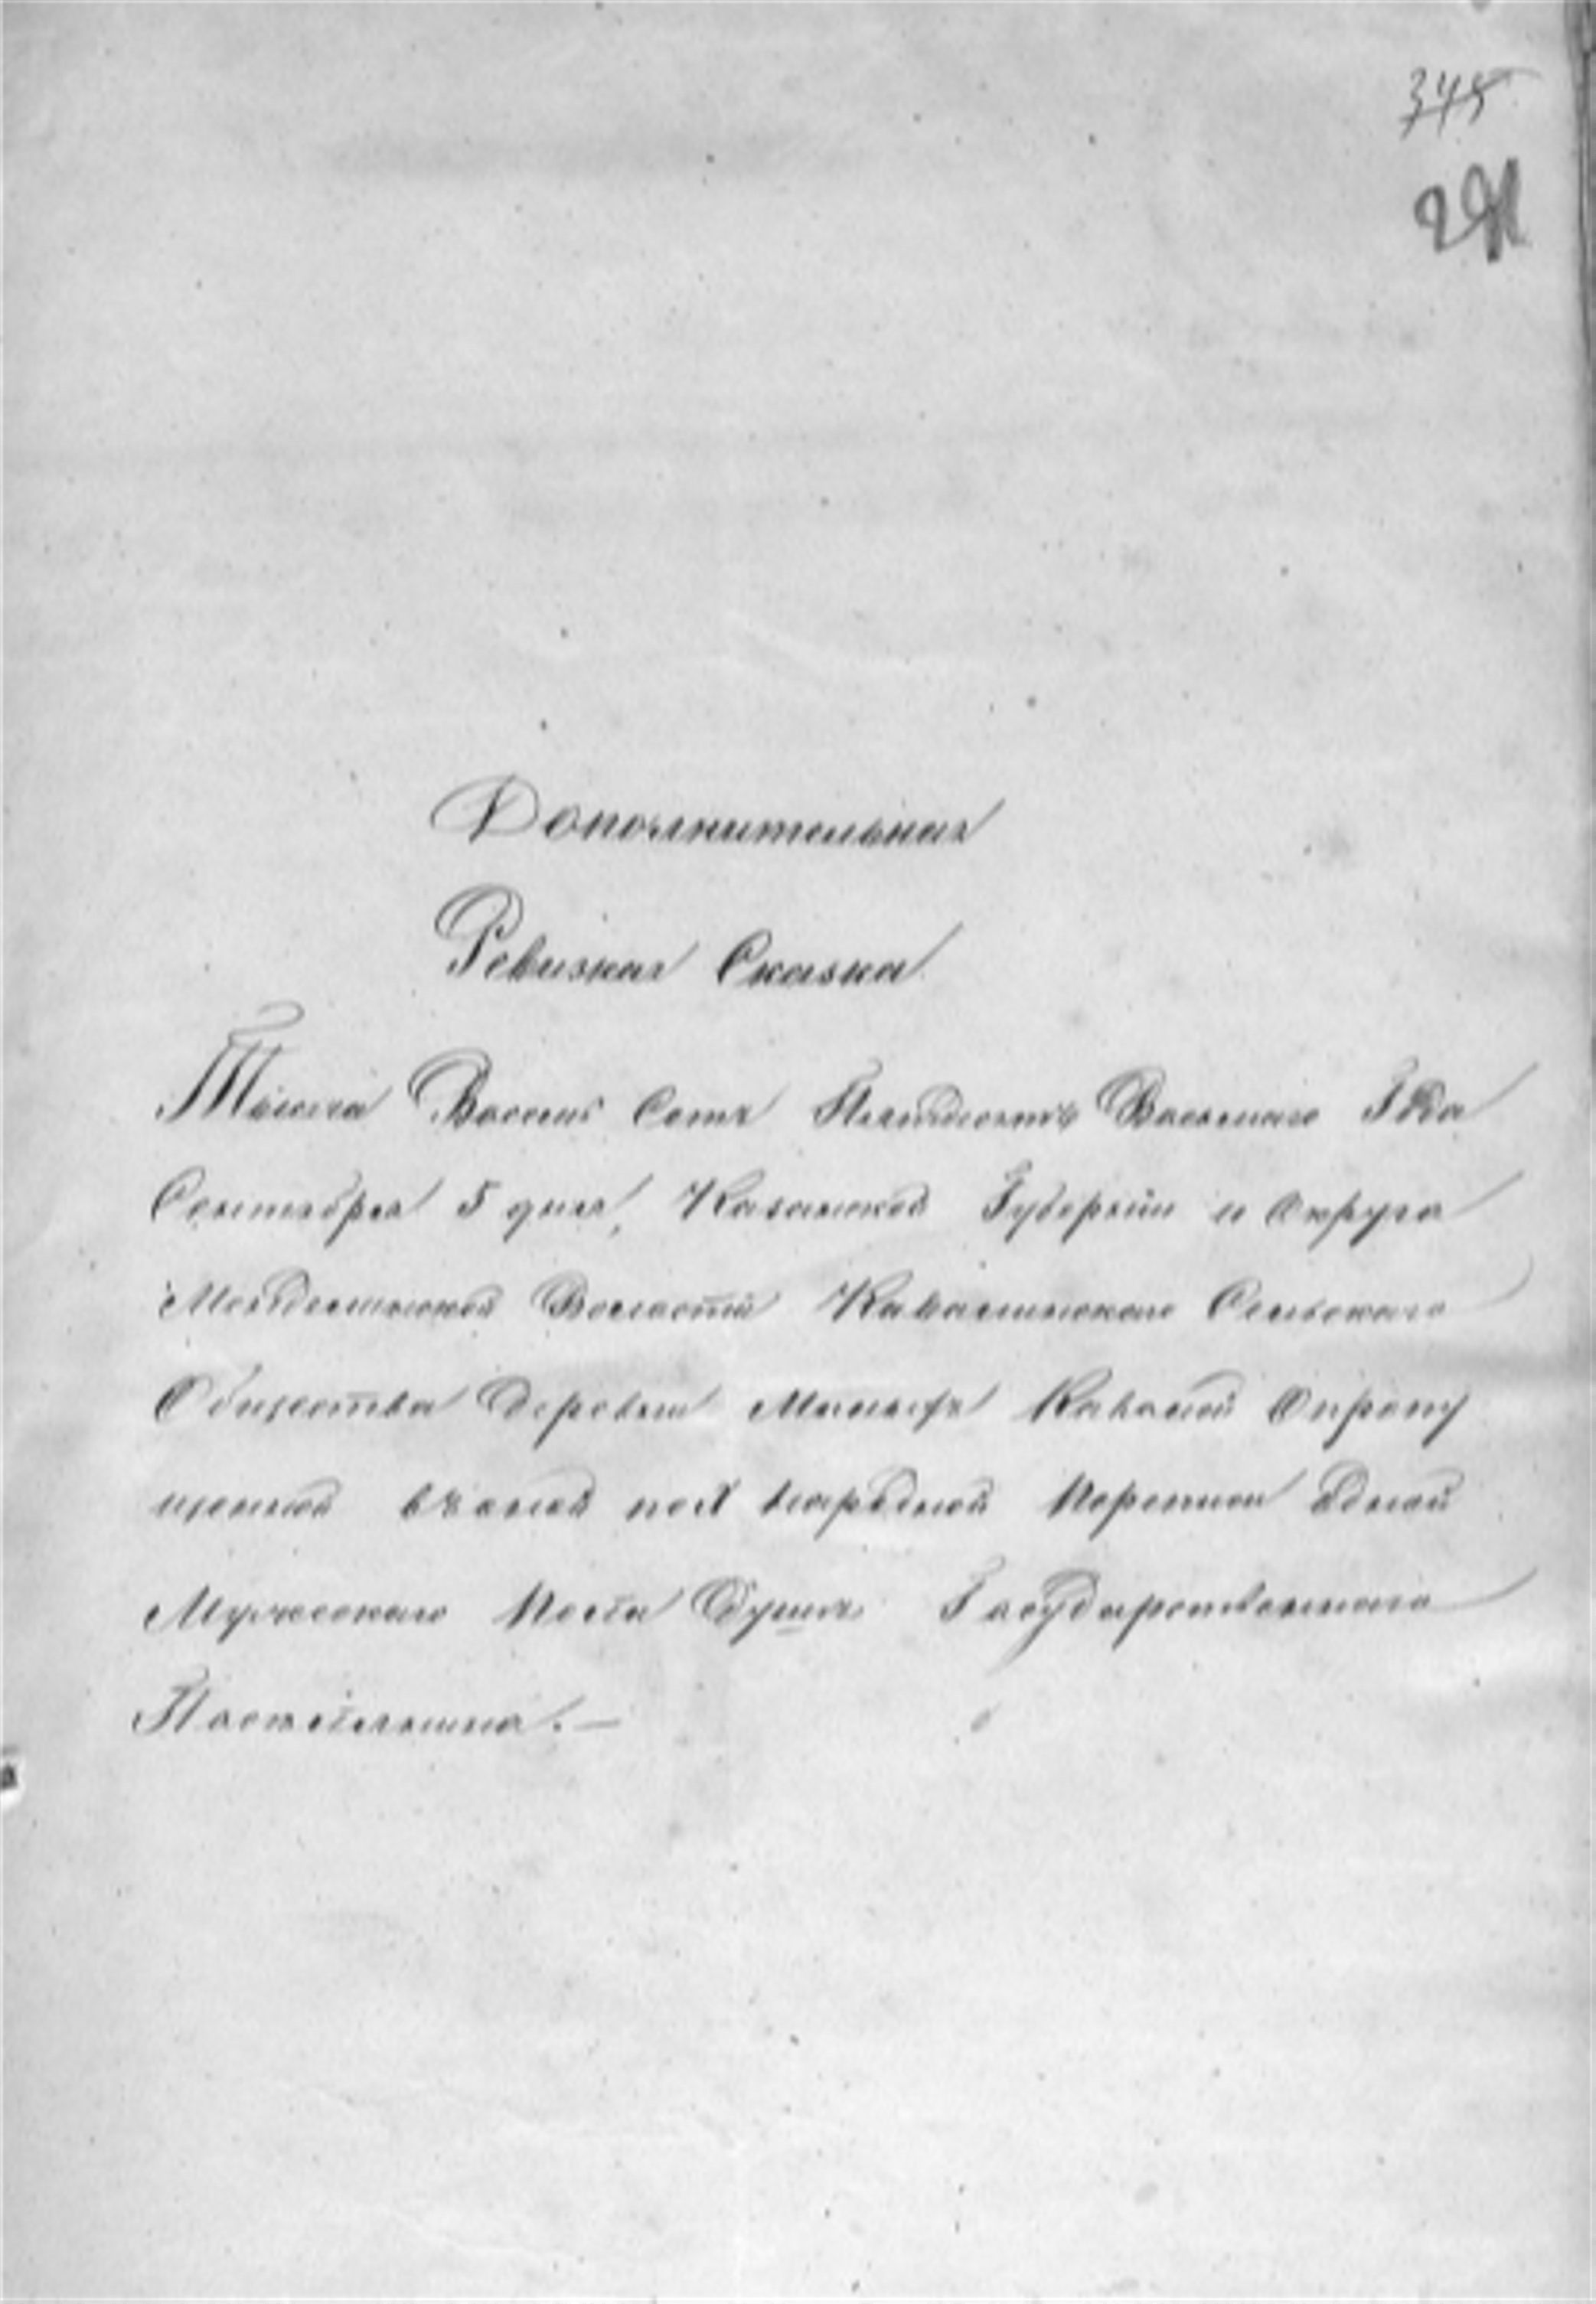 345
291
Дополнительная
Ревизкая Сказка
Тысяча Восемь Сотъ Пятьдесятъ Восьмаго Года
Сентября 5 дня, Казанской Губерніи и Округа
Волости Кавалинскаго Сельскаго
Общества Деревни Кавалей Опропу
щенной въ оной по Х народной Переписи Одной
Мужескаго Пола Души Государственнаго
Поселянина.—